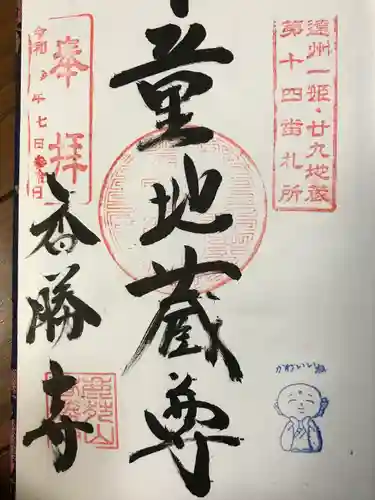 遠州一姫・廿九地蔵
第十四番札所
童地蔵尊
奉拝
令和
年七
日
香勝寺
かわいいね